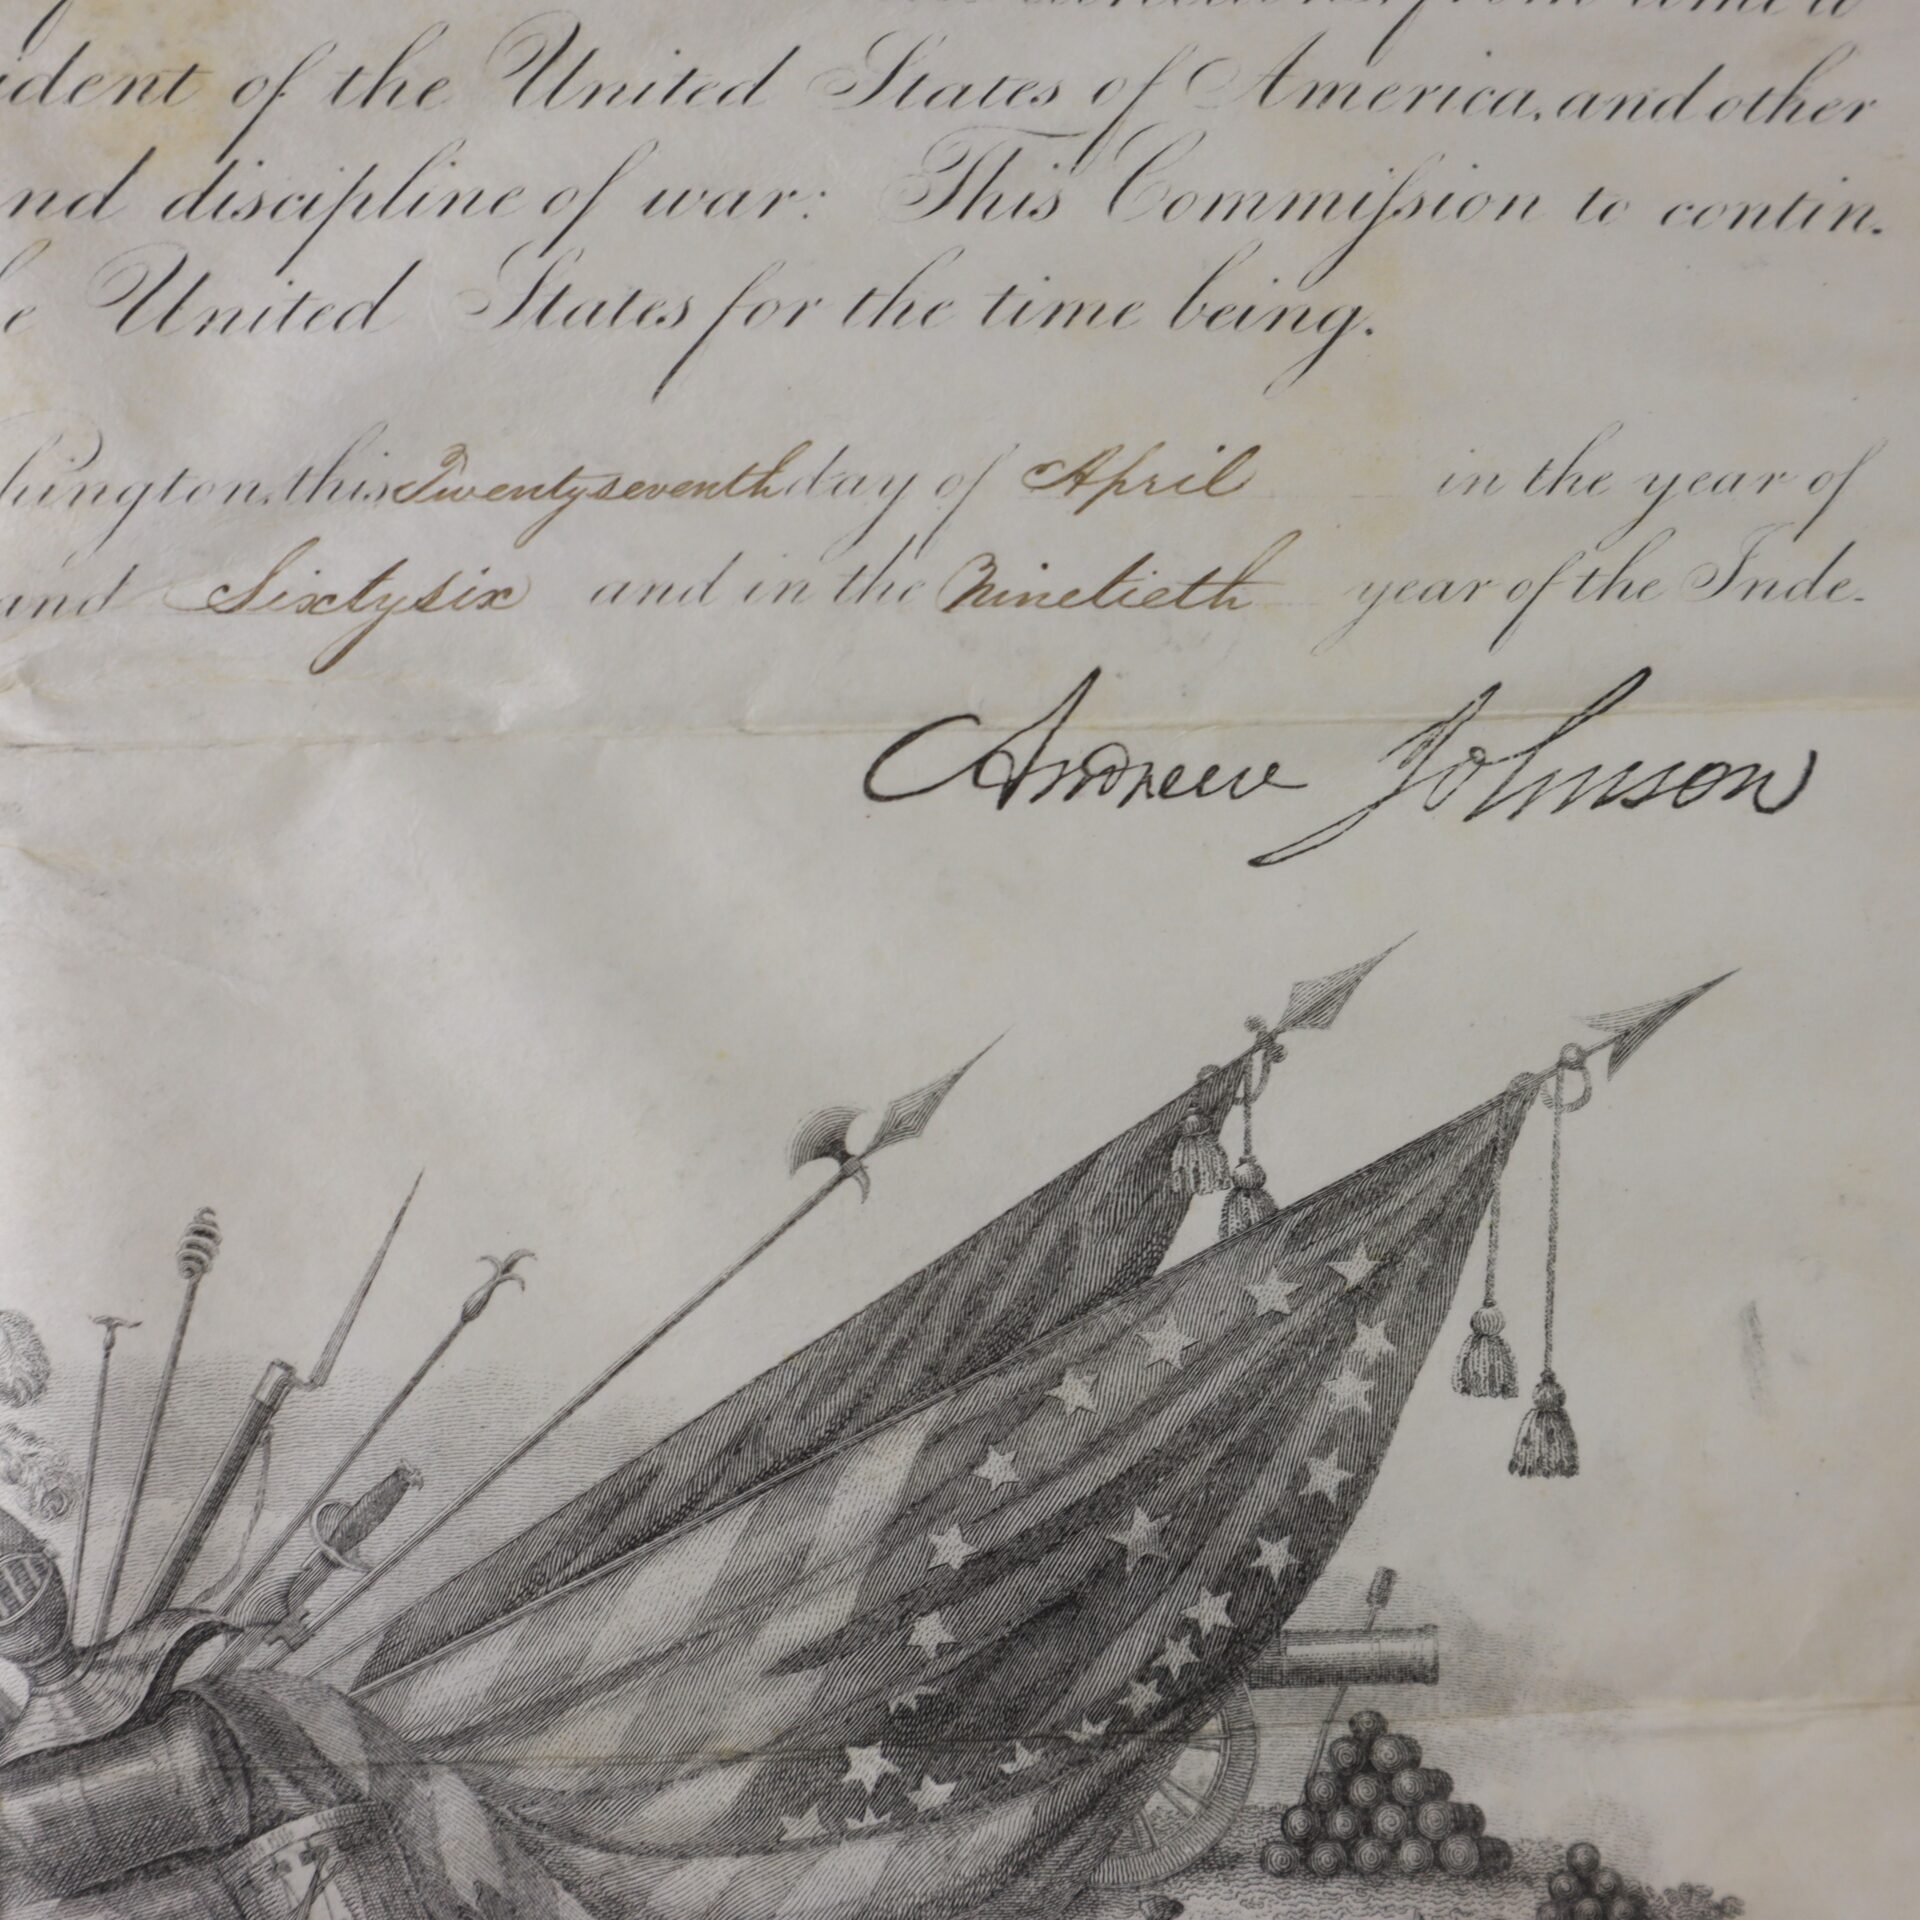 ident of the United States of America, and other
nd discipline of war: This Commiſsion to contin.
e United States for the time being.
hington, this Twentyseventh day of April in the year of
and Sixtysix and in the Ninetieth year of the Inde-
Andrew Johnson